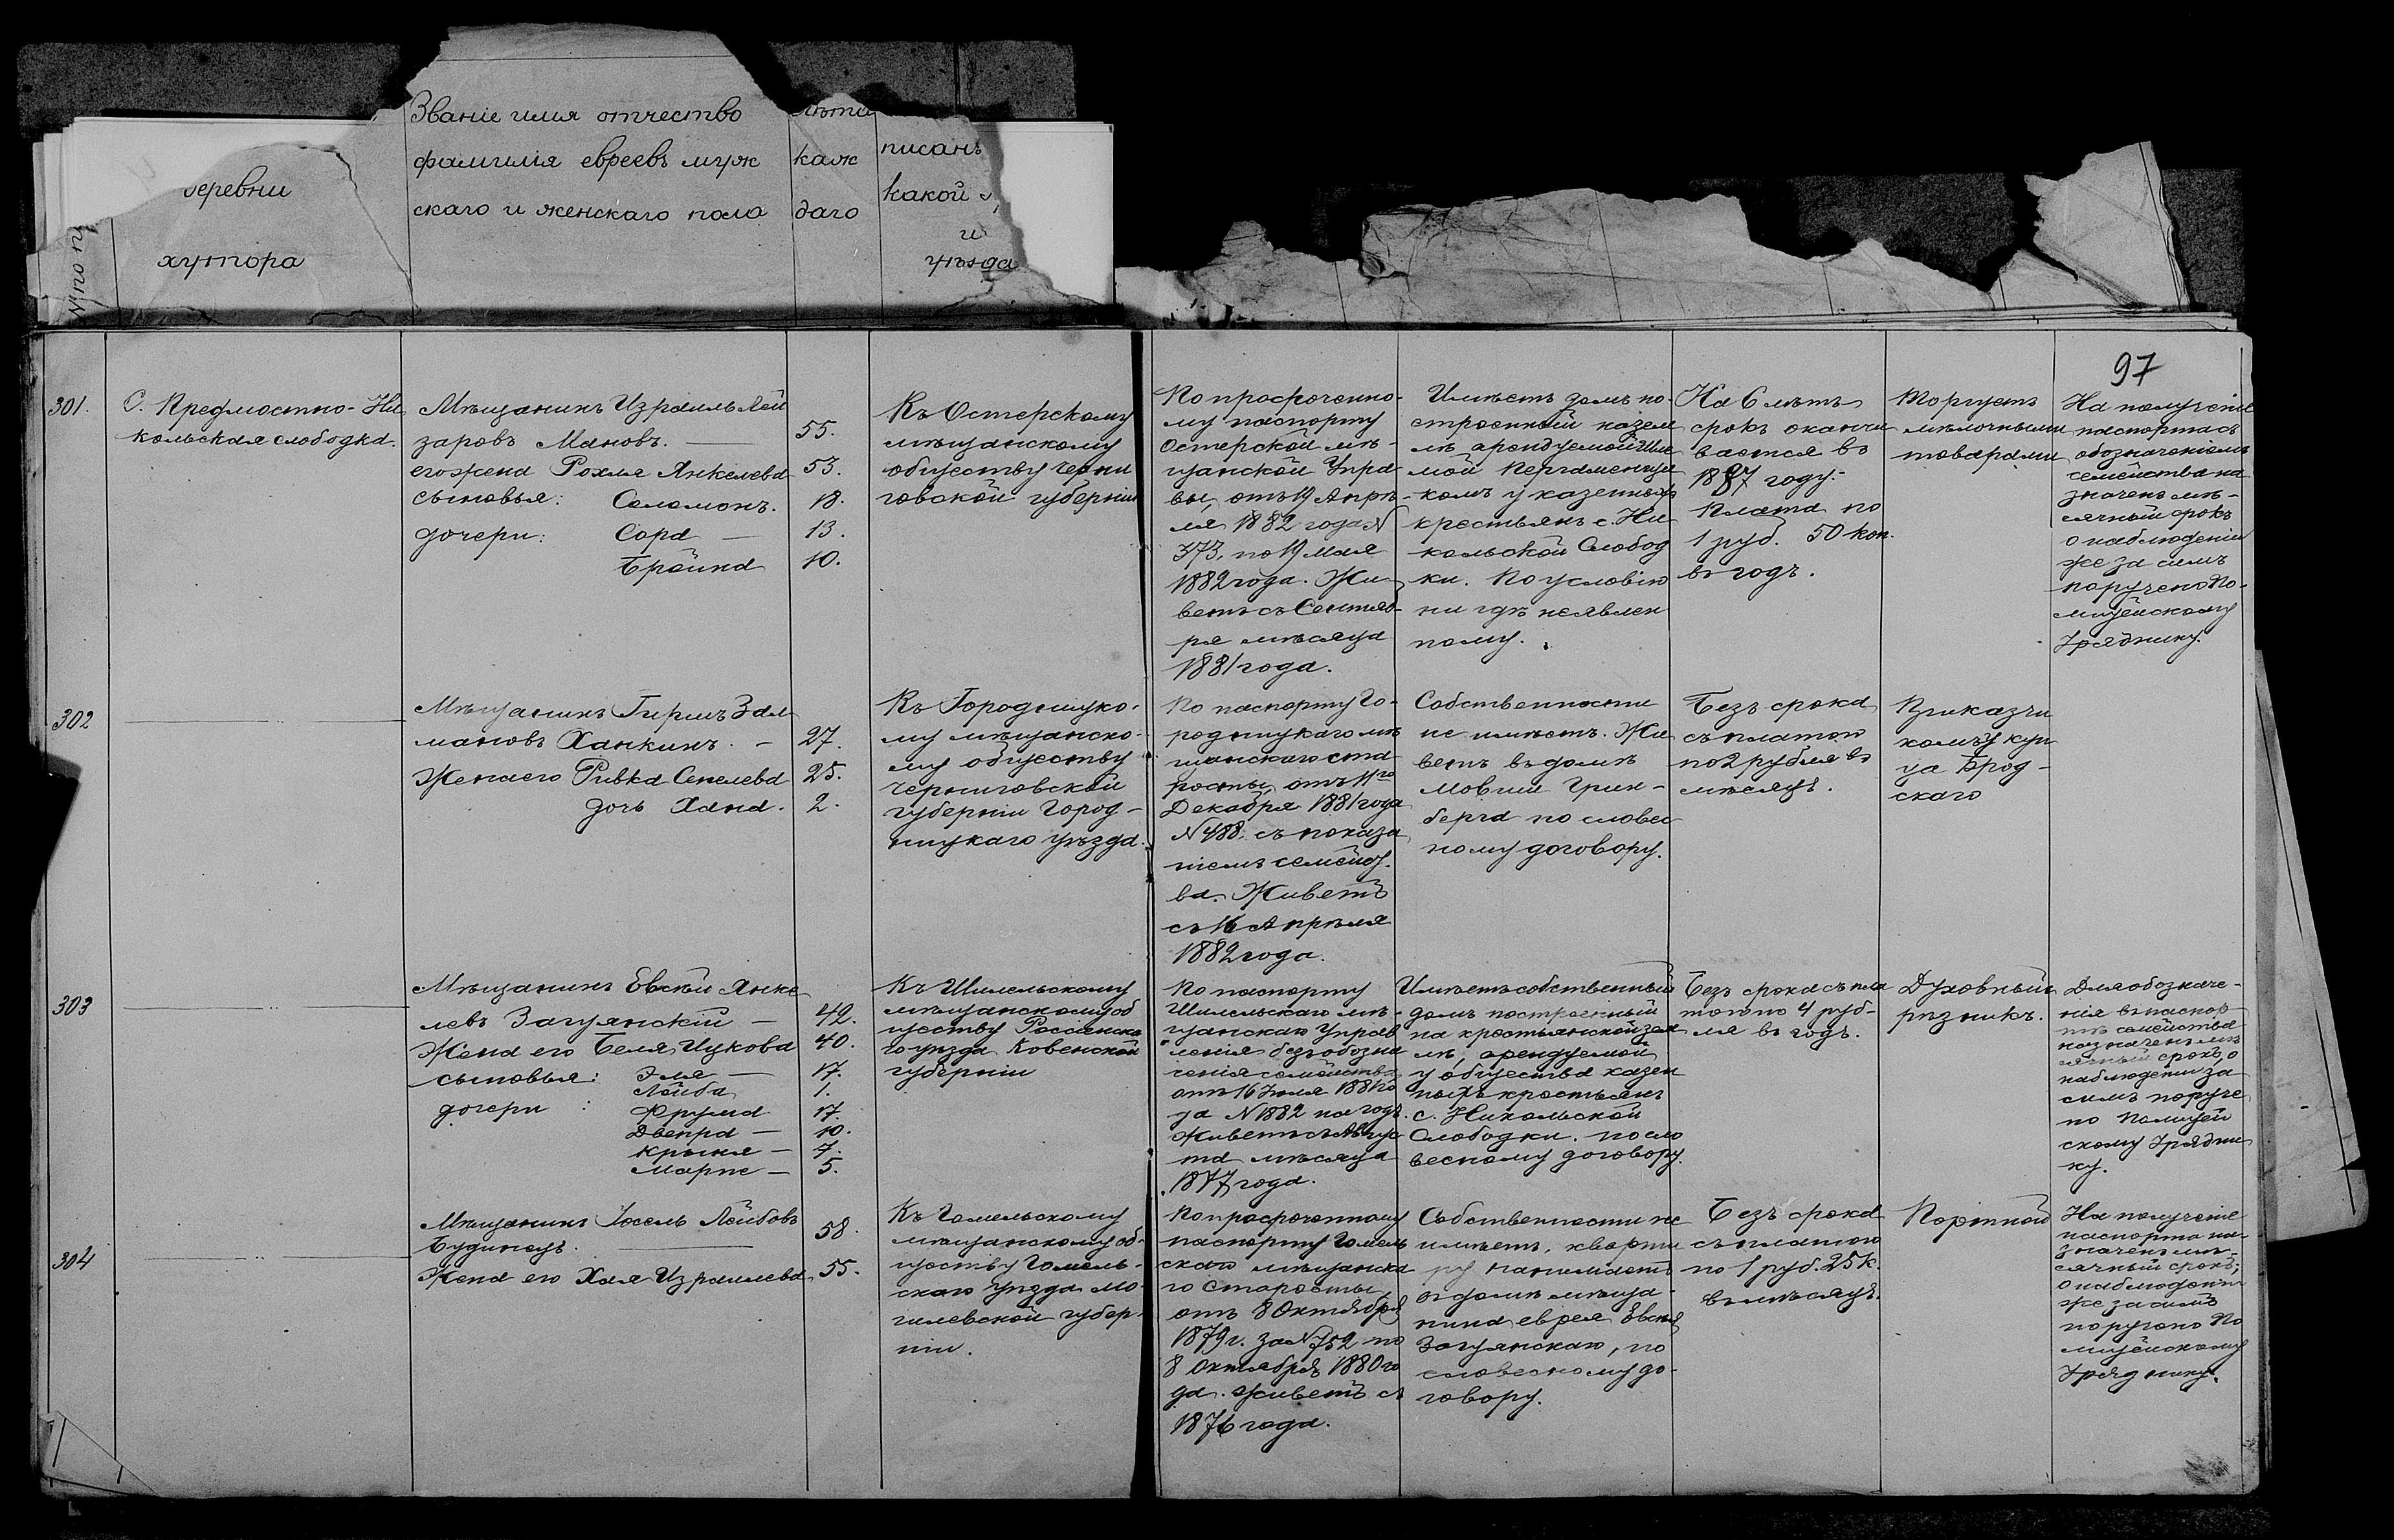 Званіе имя отчество
фамилія евреевъ муж
скаго и женскаго пола
лѣта
каж
даго
писанъ
какой
и
уѣзда
деревни
хутора
№ по п
97
301.
С. Предмостно-Ни
кольская слободка.
Мѣщанинъ Израиль Лей
заровъ Мановъ.
его жена Рохля Янкелева
сыновья: Соломонъ.
дочери: Сора
Бройна
55.
53.
18.
13.
10.
Къ Остерскому
мѣщанскому
обществу Черни
говской губерніи
По просроченно-
му паспорту
Остерской мѣ-
щанской Упра-
вы, отъ 19 Апрѣ-
ля 1882 года N
373, по 19 Мая
1882 года. Жи
ветъ съ Сентяб-
ря мѣсяца
1881 года.
Имѣетъ домъ по-
строенный на зем
лѣ арендуемой
мой
комъ у казенныхъ
крестьянъ с. Ни
кольской Слобод
ки. По условію
ни гдѣ неявлен
ному.
На 6 лѣтъ
срокъ оканчи
вается въ
1887 году.
Плата по
1 руб. 50 коп.
въ годъ.
Торгуетъ
мѣлочными
товарами
На полученіе
паспорта съ
обозначеніемъ
семейства на
значенъ мѣ-
сячный срокъ
о наблюденіи
же за симъ
поручено По-
лицейскому
Уряднику.
302
Мѣщанинъ Гиршъ Зал
мановъ Ханкинъ.
Жена его Ривка Сепелева
дочь Хана.
27.
25.
2.
Къ Городницко-
му мѣщанско-
му обществу
Черниговской
губерніи Город-
ницкаго уѣзда.
По паспорту Го-
родницкаго мѣ
щанскаго ста
росты, отъ 11го
Декабря 1881 года
N 488. съ показа
ніемъ семейст
ва. Живетъ
съ 16 Апрѣля
1882 года.
Собственности
не имѣетъ. Жи
ветъ въ домѣ
Мовши Грин-
берга по словес
ному договору.
Безъ срока
съ платою
по 2 рубля въ
мѣсяцъ.
Приказчи
комъ у куп
ца Брод-
скаго
303
Мѣщанинъ Евсѣй Янке
левъ Загуянскій
Жена его Беля Ицкова
сыновья: Эля
Лейба
дочери: Фрума
Двейра
Крыня
Марне
42.
40.
17.
1.
17.
10.
7.
5.
Къ Шилельскому
мѣщанскому об
ществу Россіенска
го уѣзда Ковенской
губерніи
По паспорту
Шилельскаго мѣ-
щанскаго Управ
ленія безъ обозна
ченія семейства
отъ 16 Іюля 1881 го
да N 1882 на годъ.
Живетъ съ Авгус
та мѣсяца
1877 года.
Имѣетъ собственный
домъ построенный
на крестьянской зем
лѣ, арендуемой
у общества казен
ныхъ крестьянъ
с. Никольской
Слободки. по сло
весному договору.
Безъ срока съ пла
тою по 4 руб-
ля въ годъ.
Духовный
рѣзникъ.
Для обозначе-
нія въ паспор
тѣ семейства
назначенъ мѣ
сячный срокъ, о
наблюденіи за
симъ поруче
но Полицей
скому Урядни
ку.
304
Мѣщанинъ Іосель Лейбовъ
Будинецъ.
Жена его Хая Израилева
58.
55.
Къ Гомельскому
мѣщанскому об-
ществу Гомель-
скаго уѣзда Мо-
гилевской губер-
ніи.
По просроченному
паспорту Гомель
скаго мѣщанска
го Старосты,
отъ 8 Октября
1879 г. за N 752 по
8 Октября 1880 го
да. живетъ съ
1876 года.
Собственности не
имѣетъ, кварти
ру нанимаетъ
въ домѣ мѣща-
нина еврея Евсѣя
Загуянскаго, по
словесному до-
говору.
Безъ срока
съ платою
по 1 руб. 25 к.
въ мѣсяцъ.
Портной
На полученіе
паспорта на-
значенъ мѣ-
сячный срокъ;
о наблюденіи
же за симъ
поручено По
лицейскому
Уряднику.